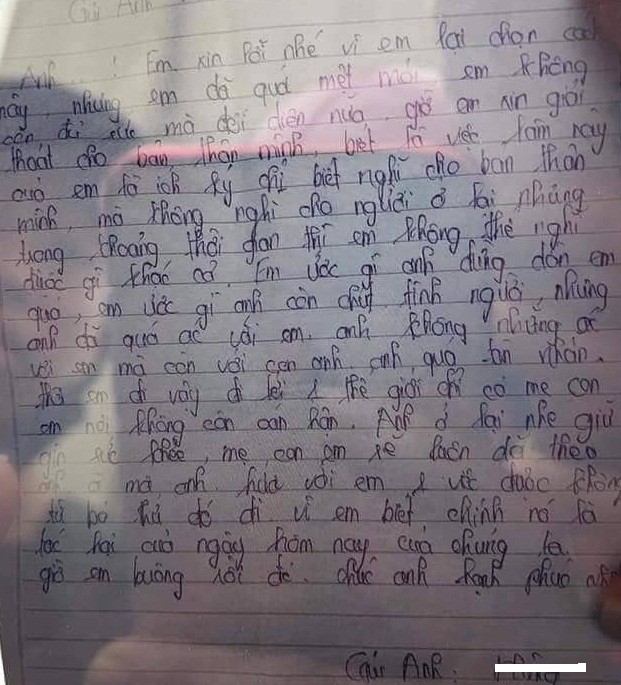 Gửi Anh
Anh...! Em xin lỗi nhé vì em lại chọn cách
này, nhưng em đã quá mệt mỏi em không
còn đủ sức mà đối diện nữa, giờ em xin giải
thoát cho bản thân mình, biết là việc làm này
của em là ích kỷ chỉ biết nghĩ cho bản thân
mình, mà không nghĩ cho người ở lại nhưng
trong khoảng thời gian thì em không thể nghĩ
được gì khác cả. Em ước gì anh đừng dồn em
quá, em ước gì anh còn chút tình người, nhưng
anh đã quá ác với em. anh không những ác
với em mà còn với con anh, anh quá tàn nhẫn.
thà em đi vậy đi tới 1 thế giới chỉ có mẹ con
em nơi không còn oán hận. Anh ở lại nhé giữ
gìn sức khỏe, mẹ con em sẽ luôn dõi theo
anh mà, anh hứa với em 1 việc được không
từ bỏ thứ đó đi vì em biết chính nó là
tác hại của ngày hôm nay của chúng ta.
giờ em buông rồi đó. chúc anh hạnh phúc
Gửi Anh: